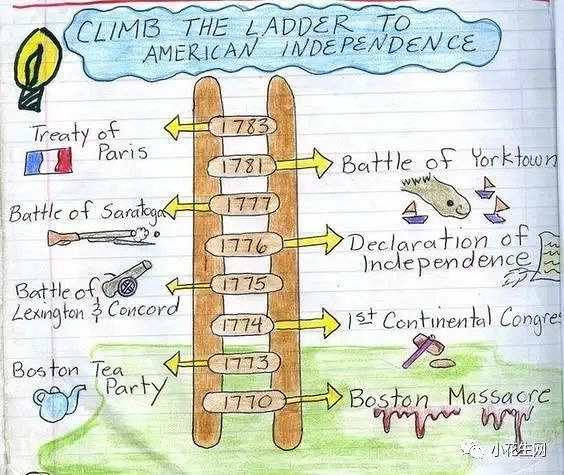 CLIMB THE LADDER TO
AMERICAN INDEPENDENCE
1783
Treaty of
Paris
1781
Battle of Yorktown
1777
Battle of Saratoga
1776
Declaration of
Independence
1775
Battle of
Lexington & Concord
1774
1st Continental Congres
1773
Boston Tea
Party
1770
Boston Massacre
小花生网